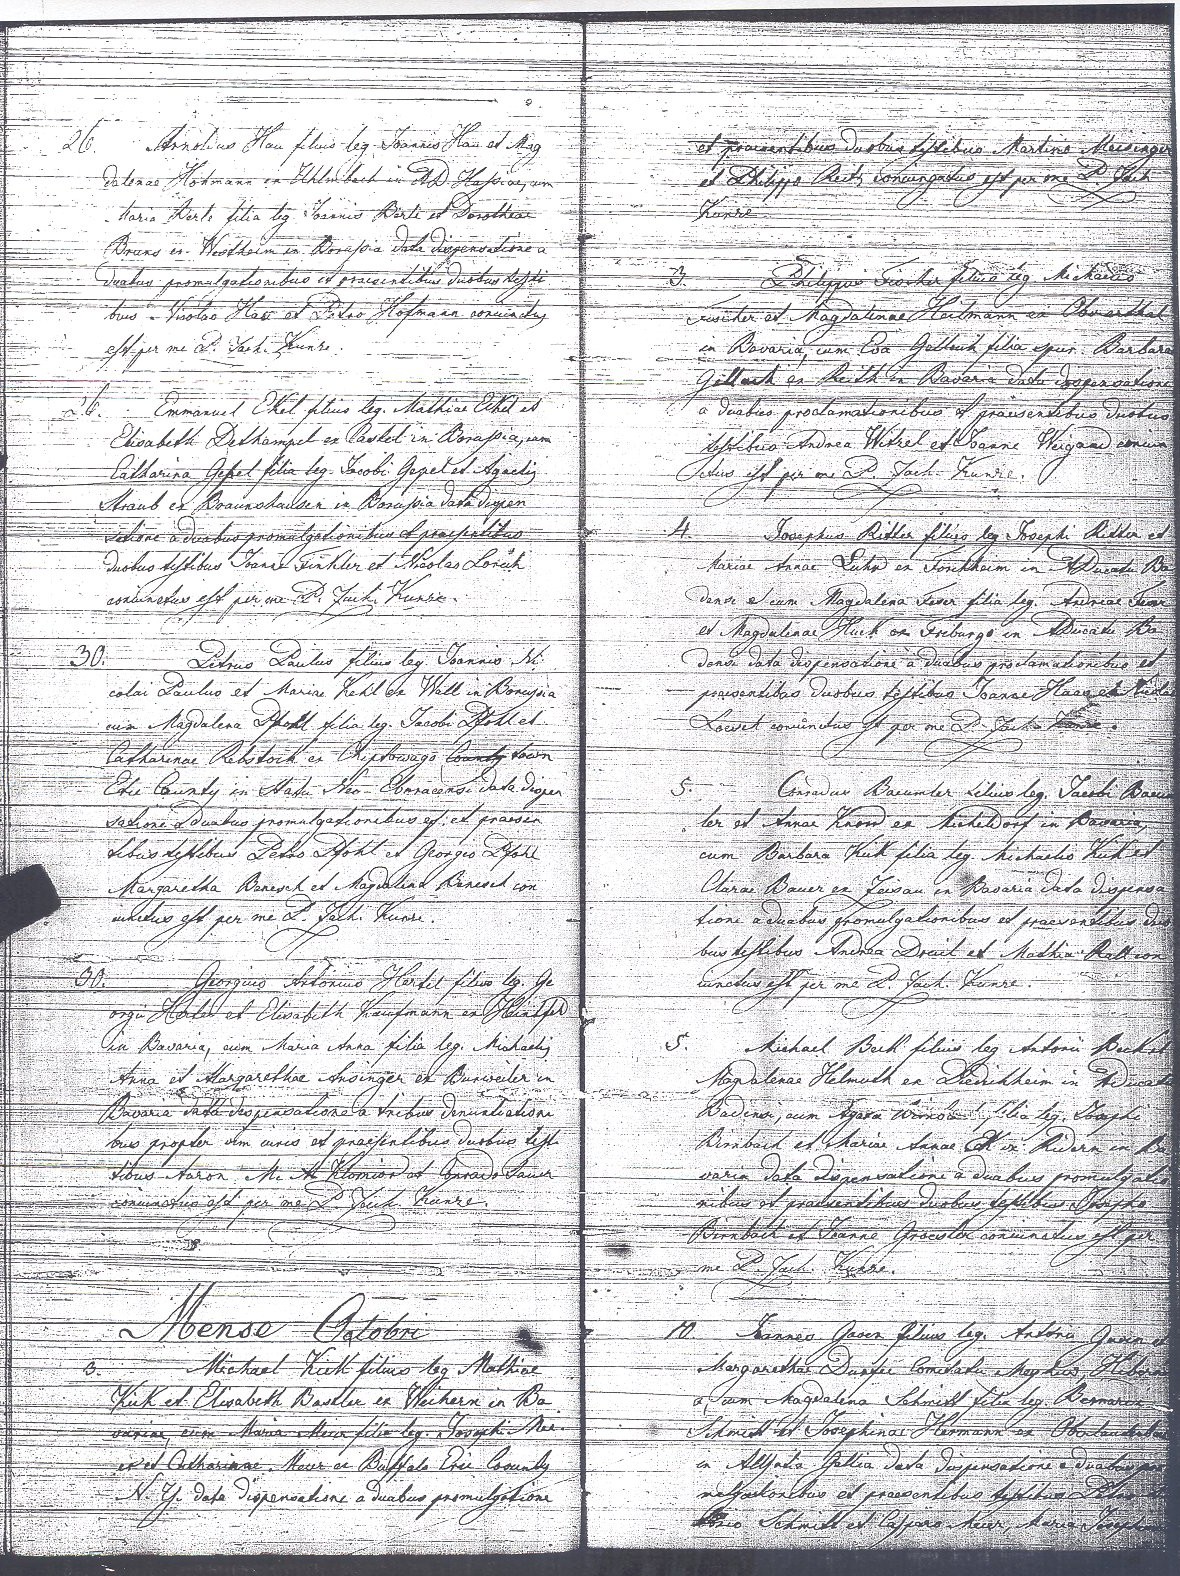 26. Arnoldus Hau filius leg. Joannis Hau et Mag
dalenae Hohmann ex Uhlmbach in A.D. Hassiae, cum
Maria Berls filia leg. Joannis Berls et Dorotheae
Bruns ex Westheim in Borussia data dispensatione a
duabus promulgationibus et praesentibus duobus testi
bus Nicolao Hau et Petro Hofmann coniunctus
est per me P. Jach. Kunze.
26. Emmanuel Ekel filius leg. Mathiae Ekel et
Elisabeth Dethampel ex Pastel in Borussia, cum
Catharina Gessel filia leg. Jacobi Gessel et Agnetis
Straub ex Braunshausen in Borussia data dispen
satione a duabus promulgationibus et praesentibus
duobus testibus Joanne Finkler et Nicolao Lorich
coniunctus est per me P. Jach. Kunze.
30. Petrus Paulus filius leg. Joannis Ni
colai Paulus et Mariae Kehl ex Wall in Borussia
cum Magdalena Pfohl filia leg. Jacobi Pfohl et
Catharinae Rebstock ex Chiptowago County town
Erie County in Statu Neo-Eboracensi data dispen
satione a duabus promulgationibus et praesen
tibus testibus Petro Pfohl et Georgio Pfohl
Margaretha Banesch et Magdalena Banesch con
iunctus est per me P. Jach. Kunze.
30. Georgius Antonius Hertel filius leg. Ge
orgii Hertel et Elisabeth Kaufmann ex
in Bavaria, cum Maria Anna filia leg. Michaelis
Anna et Margarethae Ansinger ex Burweiler in
Bavaria data dispensatione a tribus denuntiationi
bus propter vim iuris et praesentibus duobus tes
tibus Aaron Mc et Conrado Sauer
coniunctus est per me P. Jach. Kunze.
Mense Octobri
3. Michael Kick filius leg. Mathiae
Kick et Elisabeth Bassler ex Weihern in Ba
variae, cum Maria Meier filia leg. Josephi Mei
er et Catharinae Meier ex Buffalo Erie County
N. Y. data dispensatione a duabus promulgatione
et praesentibus duobus testibus Martino Meisinger
et Philippo Reitz coniungatus est per me P. Jach
Kunze
3. Philippus Fischer filius leg. Michaelis
Fischer et Magdalenae Heilmann ex Obererthal
in Bavaria, cum Eva Gellert filia spur. Barbara
ex Reith in Bavaria data dispensatione
a duabus proclamationibus et praesentibus duobus
testibus Andrea Witzel et Joanne Weigand coniun
ctus est per me P. Jach. Kunze.
4. Josephus Ritter filius leg. Josephi Ritter et
Mariae Annae Luhr ex Forchheim in A.Ducatu Ba
densi et cum Magdalena Feser filia leg. Andreae Feser
et Magdalenae Huck ex Friburgo in A.Ducatu Ba
densi data dispensatione a duabus proclamationibus et
praesentibus duobus testibus Joanne Haas et
coniunctus est per me P. Jach. Kunze.
5. Conradus Baeumler filius leg. Jacobi Baeum
ler et Annae Knorr ex Micheldorf in Bavaria,
cum Barbara Kick filia leg. Michaelis Kick et
Clarae Bauer ex Zeisau in Bavaria data dispensa
tione a duabus promulgationibus et praesentibus duo
bus testibus Andrea Drail et Mathia Rall con
iunctus est per me P. Jach. Kunze.
5. Michael Beck filius leg. Antonii Beck et
Magdalenae Helmuth ex in A.Ducatu
Badensi, cum Agata Birnbach filia leg. Josephi
Birnbach et Mariae Annae ex Riedern in Ba
varia data dispensatione a duabus promulgatio
nibus et praesentibus duobus testibus Josepho
Birnbach et Joanne Groesslex coniunctus est per
me P. Jach. Kunze.
10. Joannes Gavin filius leg. Antonii Gavin et
Margarethae Durfee Comitatu Mayhus, Hiberni
a, cum Magdalena Schmitt filia leg. Bernardi
Schmitt et Josephinae Hermann ex
in Alsatia Gallia data dispensatione a duabus pro
mulgationibus et praesentibus testibus Petro
Schmitt et Casparo Meier, Maria Josephina